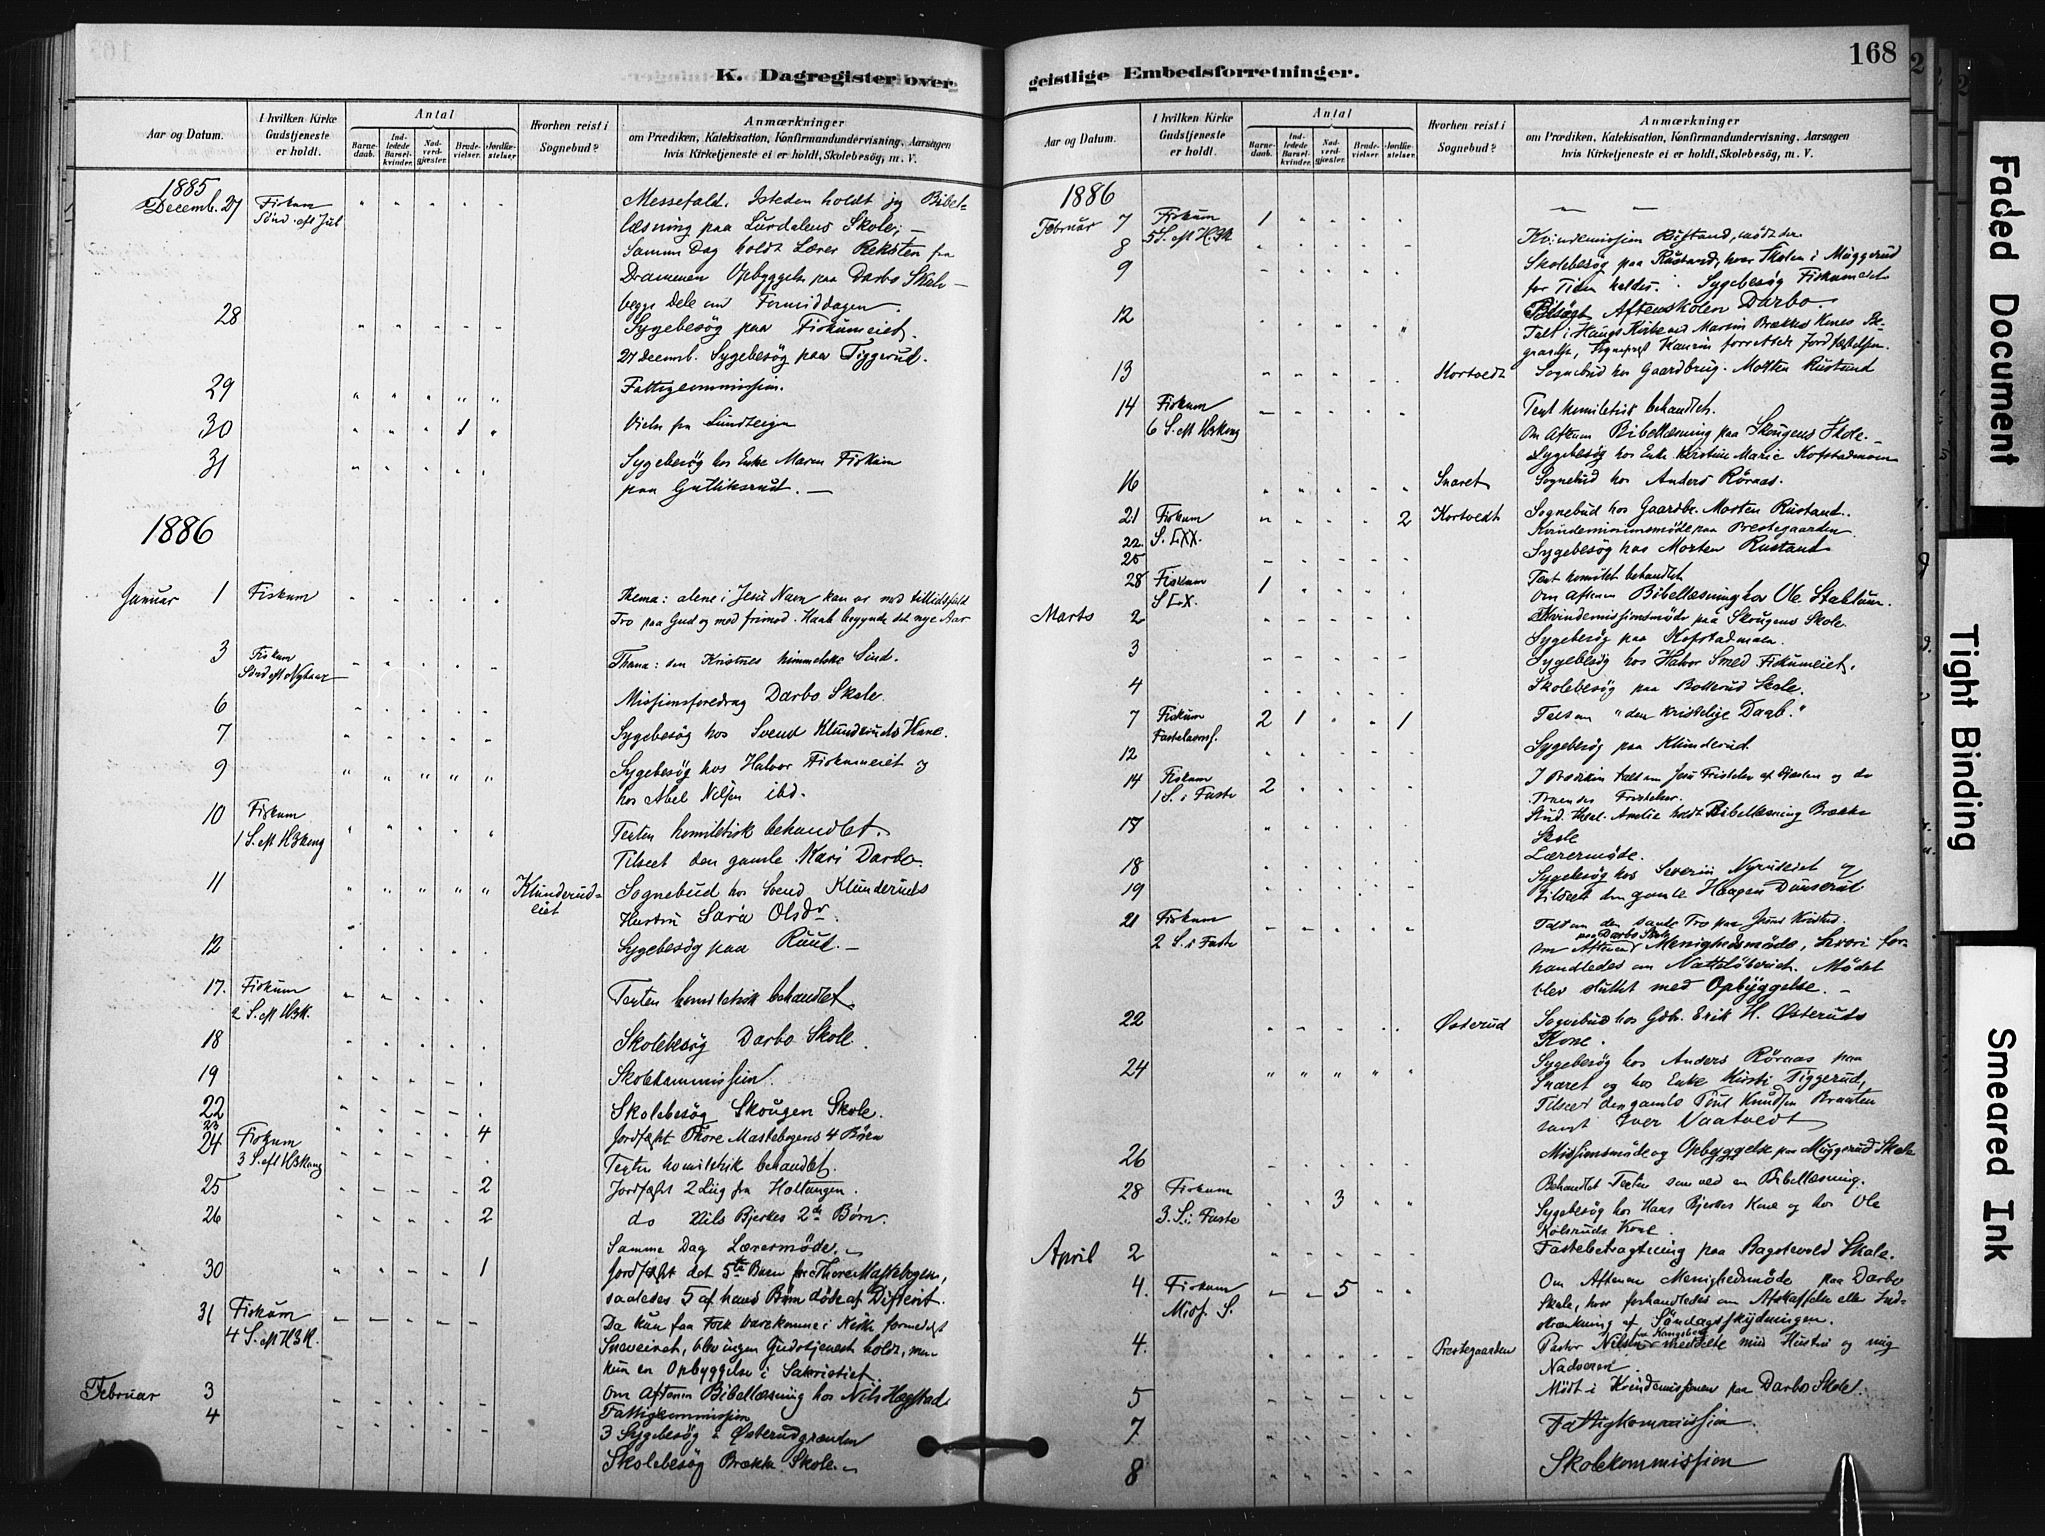 K. Dagregister over
Aar og Datum.
I hvilken Kirke Gudstjeneste er holdt.
Antal
Barne-daab.
Ind-ledede Barsel-kvinder.
Nad-verd-gjæster.
Brude-vielser.
Jordfæ-stelser.
Hvorhen reist i Sognebud?
Anmærkninger
om Prædiken, Katekisation, Konfirmandundervisning, Aarsagen
hvis Kirketjeneste ei er holdt, Skolebesög, m. V.
1885
Decemb. 27 Fiskum Messefald. Isteden holdt jeg Bibel-
Sönd. eft Jul læsning paa Lurdalens Skole; —
Samme Dag holdt Lærer Reksten fra
Drammen Opbyggelse paa Darbo Skole —
begge Dele om Formiddagen.
28 Sygebesög paa Fiskumeiet.
27 Decemb. Sygebesög paa Tiggerud.
29 Fattigcommission.
30 1 Vielse fra Lundteigen
31 Sygebesög hos Enke Maren Fiskum
paa Gutliksrud. —
1886
Januar 1 Fiskum Thema: alene i Jesu Navn kan vi med tillidsfuld
Tro paa Gud og med frimod. Haab begynde det nye Aar
3 Fiskum Thema: den Kristnes himmelske Sind.
Sönd eft Nytaar
6 Missionsforedrag Darbo Skole
7 Sygebesög hos Svend Klunderuds Kone.
9 Sygebesög hos Halvor Fiskumeiet og
hos Abel Nilsen ibd.
10 Fiskum Texten homiletisk behandlet.
1 S. eft H3kong Tilseet den gamle Kari Darbo
11 Klunderud-eiet Sognebud hos Svend Klunderuds
Hustru Sara Olsdr.
12 Sygebesög paa Ruud. —
17. Fiskum Texten homiletisk behandlet
2 S. eft H3K.
18 Skolebesög Darbo Skole.
19 Skolekommission.
22 Skolebesög Skougen Skole.
23 4 Jordfæst Thore Mastebogens 4 Börn
24 Fiskum Texten homiletisk behandlet.
3 S. eft H3kong
25 2 Jordfæst 2 Liig fra Holtangen.
26 2 do Nils Bjerkes 2de Börn.
Samme Dag Lærermöde.
30 1 Jordfæst det 5te Barn for Thore Mastebogen,
saaledes 5 af hans Börn döde af Difterit.
31 Fiskum Da kun faa Folk vare komne i Kirke formedelst
4 S. eft H3K. Sneveiret, blev ingen Gudstjeneste holdt, men
kun en Opbyggelse i Sakristiet.
Februar 3 Om Aftenen Bibellæsning hos Nils Hægstad
Fattigkommission
4 3 Sygebesög i Østerudgrænden
Skolebesög Brække Skole.
geistlige Embedsforretninger.
168
Aar og Datum.
I hvilken Kirke Gudstjeneste er holdt.
Antal
Barne-daab.
Ind-ledede Barsel-kvinder.
Nad-verd-gjæster.
Brude-vielser.
Jordfæ-stelser.
Hvorhen reist i Sognebud?
Anmærkninger
om Prædiken, Katekisation, Konfirmandundervisning, Aarsagen
hvis Kirketjeneste ei er holdt, Skolebesög, m. V.
1886
Februar 7 Fiskum 1
5 S. eft H3K
8 Kvindemission Rustand, mödt der.
9 Skolebesög paa Rustand, hvor Skolen i Muggerud
for Tiden holdes. Sygebesög Fiskumeiet
12 Besögt Aftenskolen Darbo.
Talt i Haugs Kirke ved Martin Brækkes Kones Be-
gravelse, Sognepræst Kaurin forrettede Jordfæstelsen.
13 Kortvedt Sognebud hos Gaardbrug. Morten Rustand
14 Fiskum Text homiletisk behandlet.
6 S. eft H3kong Om Aftenen Bibellæsning paa Skougens Skole.
Sygebesög hos Enke Kirstine Marie Kofstadmoen
16 Snaret Sognebud hos Anders Röraas.
21 Fiskum 2 Kortvedt Sognebud hos Gaardbr. Morten Rustand.
22 S. LXX. Kvindemissionsmöde paa Prestegaarden
25 Sygebesög hos Morten Rustand
28 Fiskum 1 Text homilet behandlet
S LX. Om Aftenen Bibellæsning hos Ole Stablum.
Marts 2 Kvindemissionsmöde paa Skougens Skole.
Sygebesög paa Kofstadmoen.
3 Sygebesög hos Halvor Smed Fiskumeiet.
4 Skolebesög paa Bollerud Skole.
7 Fiskum 2 1 1 Talt om "den kristelige Daab."
Fastelavnss.
12 Sygebesög paa Klunderud.
14 Fiskum 2 I Prædiken talt om Jesu Fristelse af Djævelen og de
1 S. i Faste Troendes Fristelser.
17 Stud. theol. Amelie holdt Bibellæsning Brække
Skole
18 Lærermöde.
19 Sygebesög hos Severin Nyrudeiet og
tilseet den gamle Haagen Dunserud
21 Fiskum Talt om den sande Tro paa Jesus Kristus.
2 S. i Faste Om Aftenen paa Darbo Skole Menighedsmöde, hvori for-
handledes om Natteløberiet. Mödet
blev sluttet med Opbyggelse. —
22 Østerud Sognebud hos Gdbr. Erik H. Østeruds
Kone.
24 Sygebesög hos Anders Röraas paa
Snaret og hos Enke Kirsti Tiggerud,
Tilseet den gamle Knudsen Braaten
samt Iver Vaatvedt
26 Missionsmöde og Opbyggelse paa Muggerud Skole
28 Fiskum 3 Behandlet Texten som ved en Bibellæsning.
3. S. i Faste Sygebesög hos Hans Bjerkes Kone og hos Ole
Kölsruds Kone.
April 2 Fastebetragtning paa Bagstevold Skole.
4. Fiskum 5 Om Aftenen Menighedsmöde paa Darbo
Midf. S. Skole, hvor forhandledes om Afskaffelse eller Ind-
skrænkning af Söndagsskydningen.
4. Prestegaarden Pastor Nilsen fra Kongsberg meddelte min Hustru og mig
Nadveren
5 Mödt i Kvindemissionen paa Darbo Skole.
7 Fattigkommission.
8 Skolekommission
Faded Document
Tight Binding
Smeared Ink